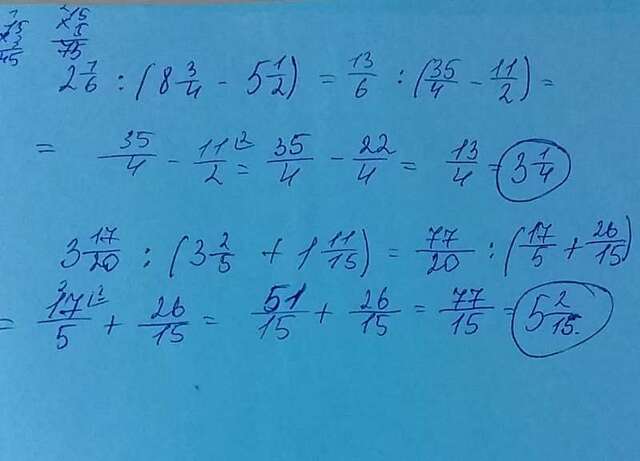 15 ×3 45   ×15 5 75
2 1/6 : (8 3/4 - 5 1/2) = 13/6 : (35/4 - 11/2) =
= 35/4 - 11/2 ⌊2 = 35/4 - 22/4 = 13/4 = 3 1/4
3 17/20 : (3 2/5 + 1 11/15) = 77/20 : (17/5 + 26/15)
= 17/5 + 26/15 = 51/15 + 26/15 = 77/15 = 5 2/15.